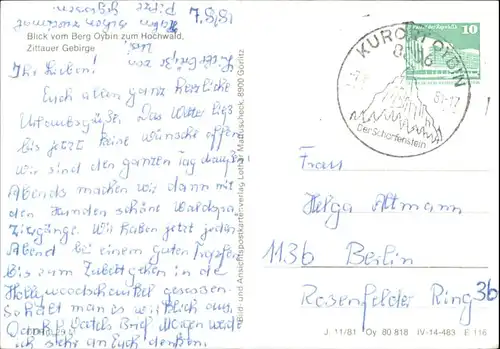 Blick vom Berg Oybin zum Hochwald,
Zittauer Gebirge
Ihr Lieben!
Euch allen ganz herzliche
Urlaubsgrüße. Das Wetter ließ
bis jetzt keine Wünsche offen
wir sind den ganzen Tag draußen
Abends machen wir dann mit
den Hunden schöne Waldspa-
ziergänge. Wir haben jetzt jeden
Abend bei einem guten Tropfen
bis zum Zubettgehen in der
Hollywoodschaukel gesessen.
hält man es wirklich aus.
ich sehr an Euch denken.
Bild- und Ansichtspostkartenverlag Lothar Mattuscheck, 8900 Görlitz
KURORT OYBIN
8806
Der Scharfenstein
10
Frau
Helga Altmann
1136 Berlin
Rosenfelder Ring 3b
J. 11/81 Oy 80 818 IV-14-483 E 116